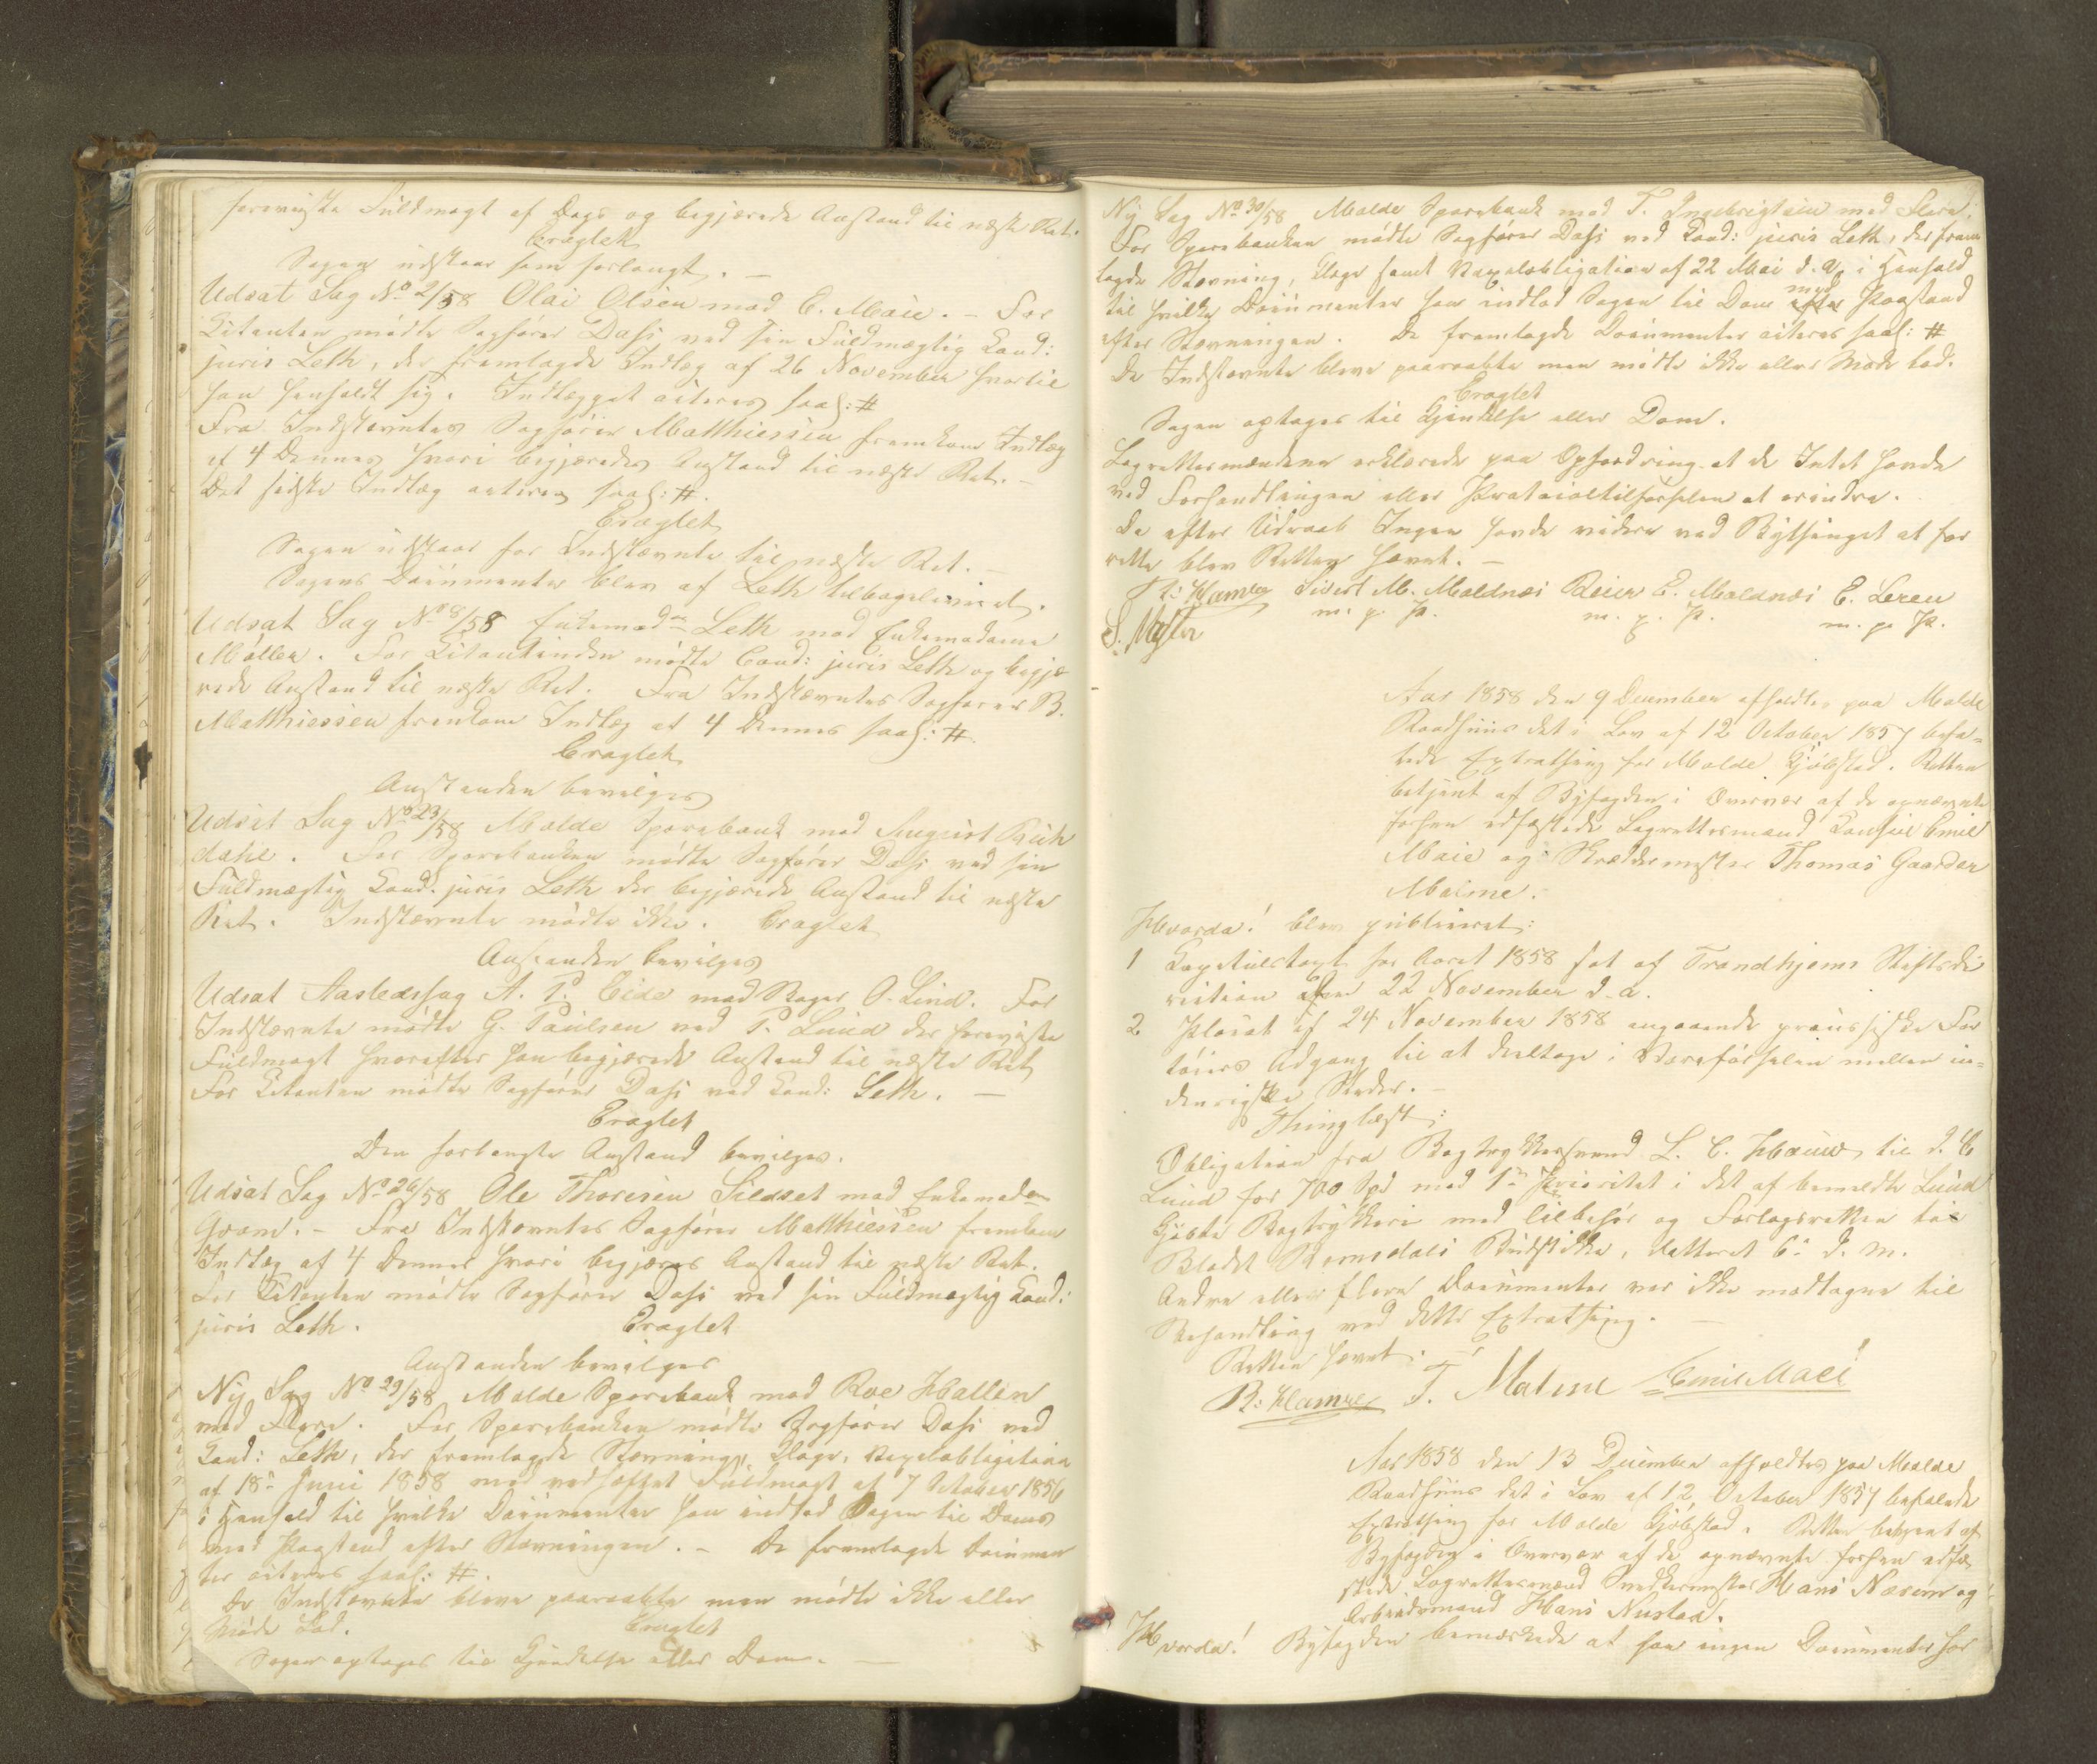 foreviste Fuldmagt af Dags og begjærede Anstand til næste Ret.
Eragtet
Sagen udstaar som forlangt. —
Udsat Sag No 2/58 Olai Olsen mod E. Maie. – For
Citanten mødte Sagfører Dahl ved sin Fuldmægtig Cand:
juris Leth, der fremlagde Indlæg af 26 November hvortil
han henholdt sig. Indlægget acteres saal: #
Fra Indstævntes Sagfører Matthiessen fremkom Indlæg
af 4 Dennes hvori begjæredes Anstand til næste Ret. –
Det sidste Indlæg acteres saal: #.
Eragtet
Sagen udstaar for Indstævnte til næste Ret. –
Sagens Documenter blev af Leth tilbageleveret.
Udsat Sag No 8/58 Enkemadm Leth mod Enkemadame
Møller. For Citantinden mødte Cand: juris Leth og begjæ
rede Anstand til næste Ret. Fra Indstævntes Sagfører B.
Matthiessen fremkom Indlæg af 4 Dennes saal: #.
Eragtet
Anstanden bevilges
Udsat Sag No 23/58 Molde Sparebank mod August
For Sparebanken mødte Sagfører Dahl ved sin
Fuldmægtig Cand. juris Leth der begjærede Anstand til næste
Ret. Indstævnte mødte ikke. Eragtet
Anstanden bevilges
Udsat Aastedssag A. P. Eide mod Bager O. Lind. For
Indstævnte mødte G. Paulsen ved P. Lund der foreviste
Fuldmagt hvorefter han begjærede Anstand til næste Ret
For Citanten mødte Sagfører Dahl ved Cand: Leth. —
Eragtet
Den forlangte Anstand bevilges.
Udsat Sag No 26/58 Ole Thoresen Sildset mod Enkemadm
Gram. – Fra Indstævntes Sagfører Matthiessen fremkom
Indlæg af 4 Dennes hvori begjæres Anstand til næste Ret.
For Citanten mødte Sagfører Dahl ved sin Fuldmægtig Cand:
juris Leth. Eragtet
Anstanden bevilges
Ny Sag No 29/58 Molde Sparebank mod Roe Hallen
med Flere. For Sparebanken mødte Sagfører Dahl ved
Cand: Leth, der fremlagde Stævning, Klage, Vexelobligation
af 18de Juni 1858 med vedhæftet Fuldmagt af 7 October 1856
i Henhold til hvilke Documenter han indlod Sagen til Doms
med Paastand efter Stævningen. – De fremlagde Documen
ter acteres saal: #.
De Indstævnte bleve paaraabte men mødte ikke eller
Møde lod. Eragtet
Sagen optages til Kjendelse eller Dom. —
Ny Sag No 30/58 Molde Sparebank mod T. Ingebrigtsen med Flere.
For Sparebanken mødte Sagfører Dahl ved Cand: juris Leth, der frem
lagde Stævning, Klage samt Vexelobligation af 22 Mai d. A. i Henhold
til hvilke Documenter han indlod Sagen til Dom med Paastand
efter Stævningen. De fremlagde Documenter acteres saal: #
De Indstævnte bleve paaraabte men mødte ikke eller Møde lod.
Eragtet
Sagen optages til Kjendelse eller Dom.
Lagrettesmændene erklærede paa Opfordring at de Intet havde
ved Forhandlingen eller Protocoltilførselen at erindre.
Da efter Udraab Ingen havde videre ved Bythinget at for
rette blev Retten hævet. —
R: Hamre Sivert M. Moldnæs Peier E. Moldnæs E. Leren
m. p. P. m. p. P. m. p. P.
Aar 1858 den 9 December afholdtes paa Molde
Raadhuus det i Lov af 12 October 1857 befa-
lede Extrathing for Molde Kjøbstad. Retten
betjent af Byfogden i Overvær af de opnævnte
forhen edfæstede Lagrettesmænd Consul Emil
Maie og Skræddermester Thomas Gaarder
Malme.
Hvorda! blev publiceret:
1 Capitelstaxt for Aaret 1858 sat af Trondhjems Stiftsdi
rection den 22 November d. a.
2 Placat af 24 November 1858 angaaende preussiske Far
tøiers Adgang til at deeltage i Vareførselen mellem in=
denrigske Steder. —
Thinglæst:
Obligation fra Bogtrykkersvend L. C. til d. C
Lund for 700 Spd med 1ste Prioritet i det af bemeldte Lund
kjøbte Bogtrykkeri med Tilbehør og Forlagsretten til
Bladet Romsdals Budstikke, dateret 6te d. M.
Andre eller flere Documenter var ikke modtagne til
Behandling ved dette Extrathing. —
Retten hævet.
R: Hamre T. Malme Emil Maie
Aar 1858 den 13 December afholdtes paa Molde
Raadhuus det i Lov af 12 October 1857 befalede
Extrathing for Molde Kjøbstad. Retten betjent af
Byfogden i Overvær af de opnævnte forhen edfæ
stede Lagrettesmænd Snedkermester Hans Næsem og
Arbeidsmand Hans Nustad.
Hvorda! Byfogden bemærkede at han ingen Documenter for